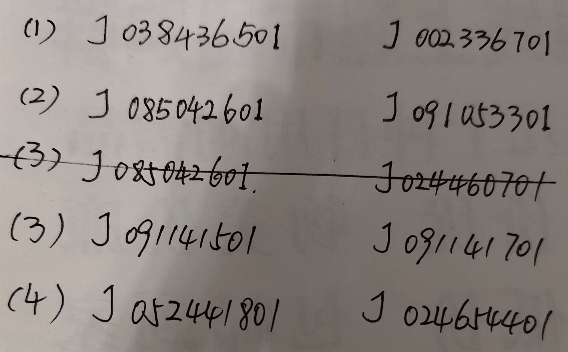 (1) J 038436501 J 002336701
(2) J 085042601 J 091053301
(3) J 085042601. J 024460701
(3) J 091141501 J 091141701
(4) J 052441801 J 024654401